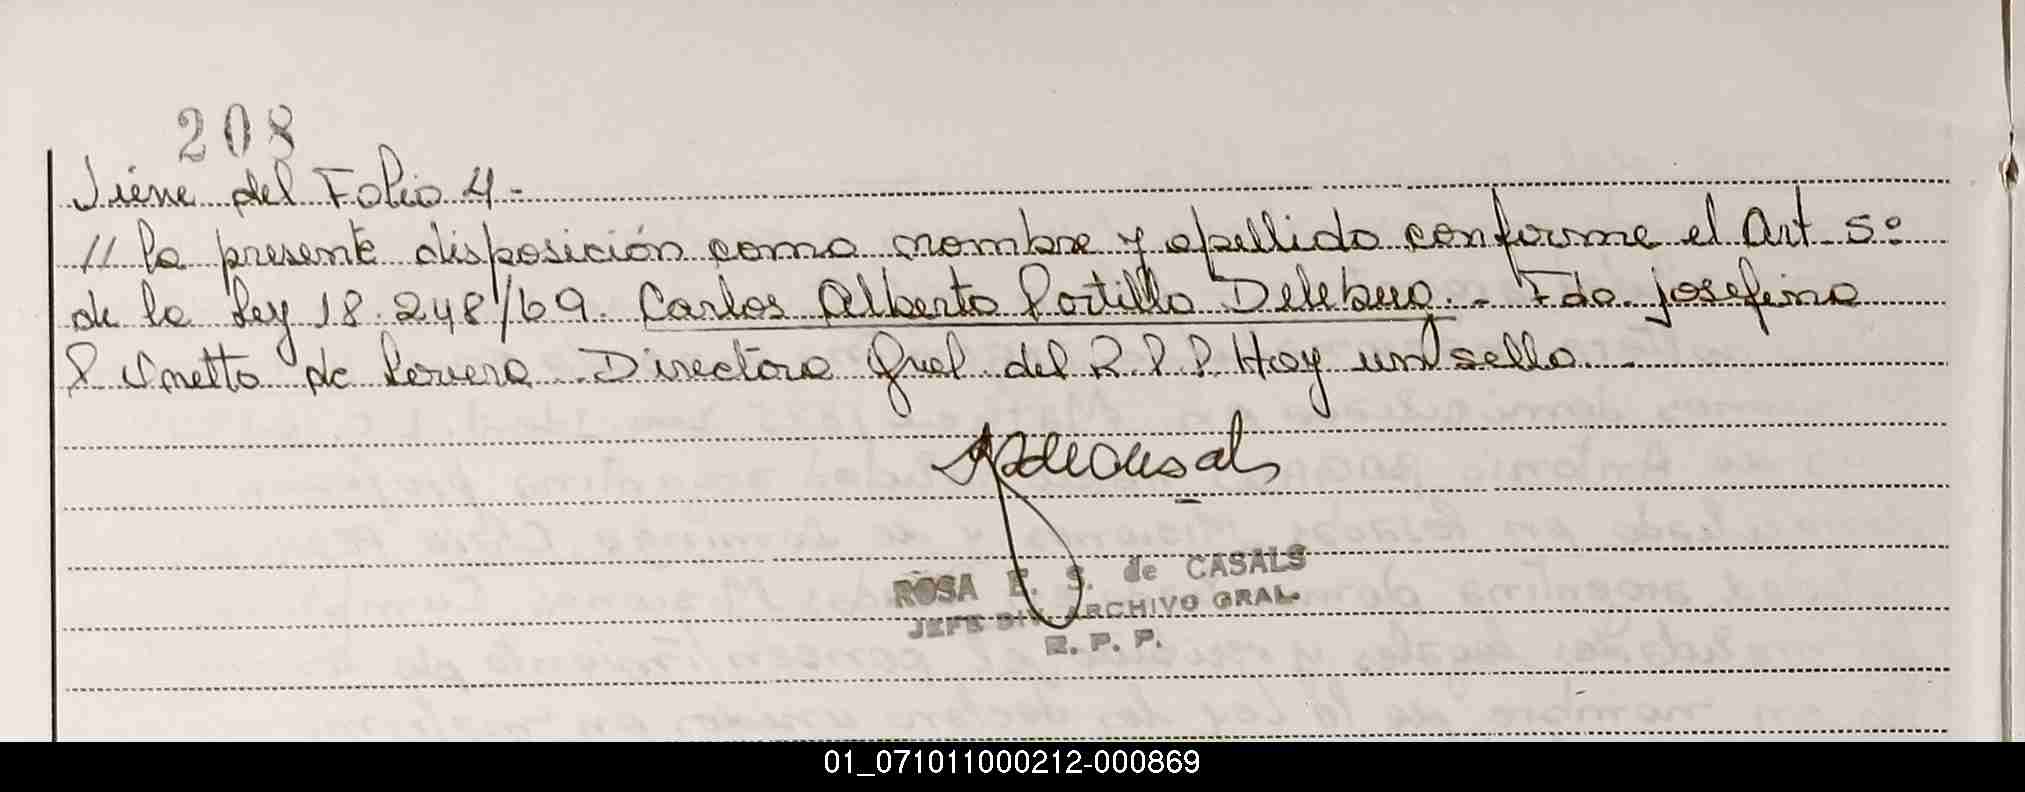 208
Viene del Folio 4.-
// la presente disposición como nombre y apellido conforme el Art 5º
de la Ley 18.248/69. Carlos Alberto Portillo Delebuo. - Fdo. Josefina
P de Directora Gral del R.P.P Hay un sello. -
ROSA E. S. de CASALS
JEFE DIV. ARCHIVO GRAL.
R. P. P.
01_071011000212-000869